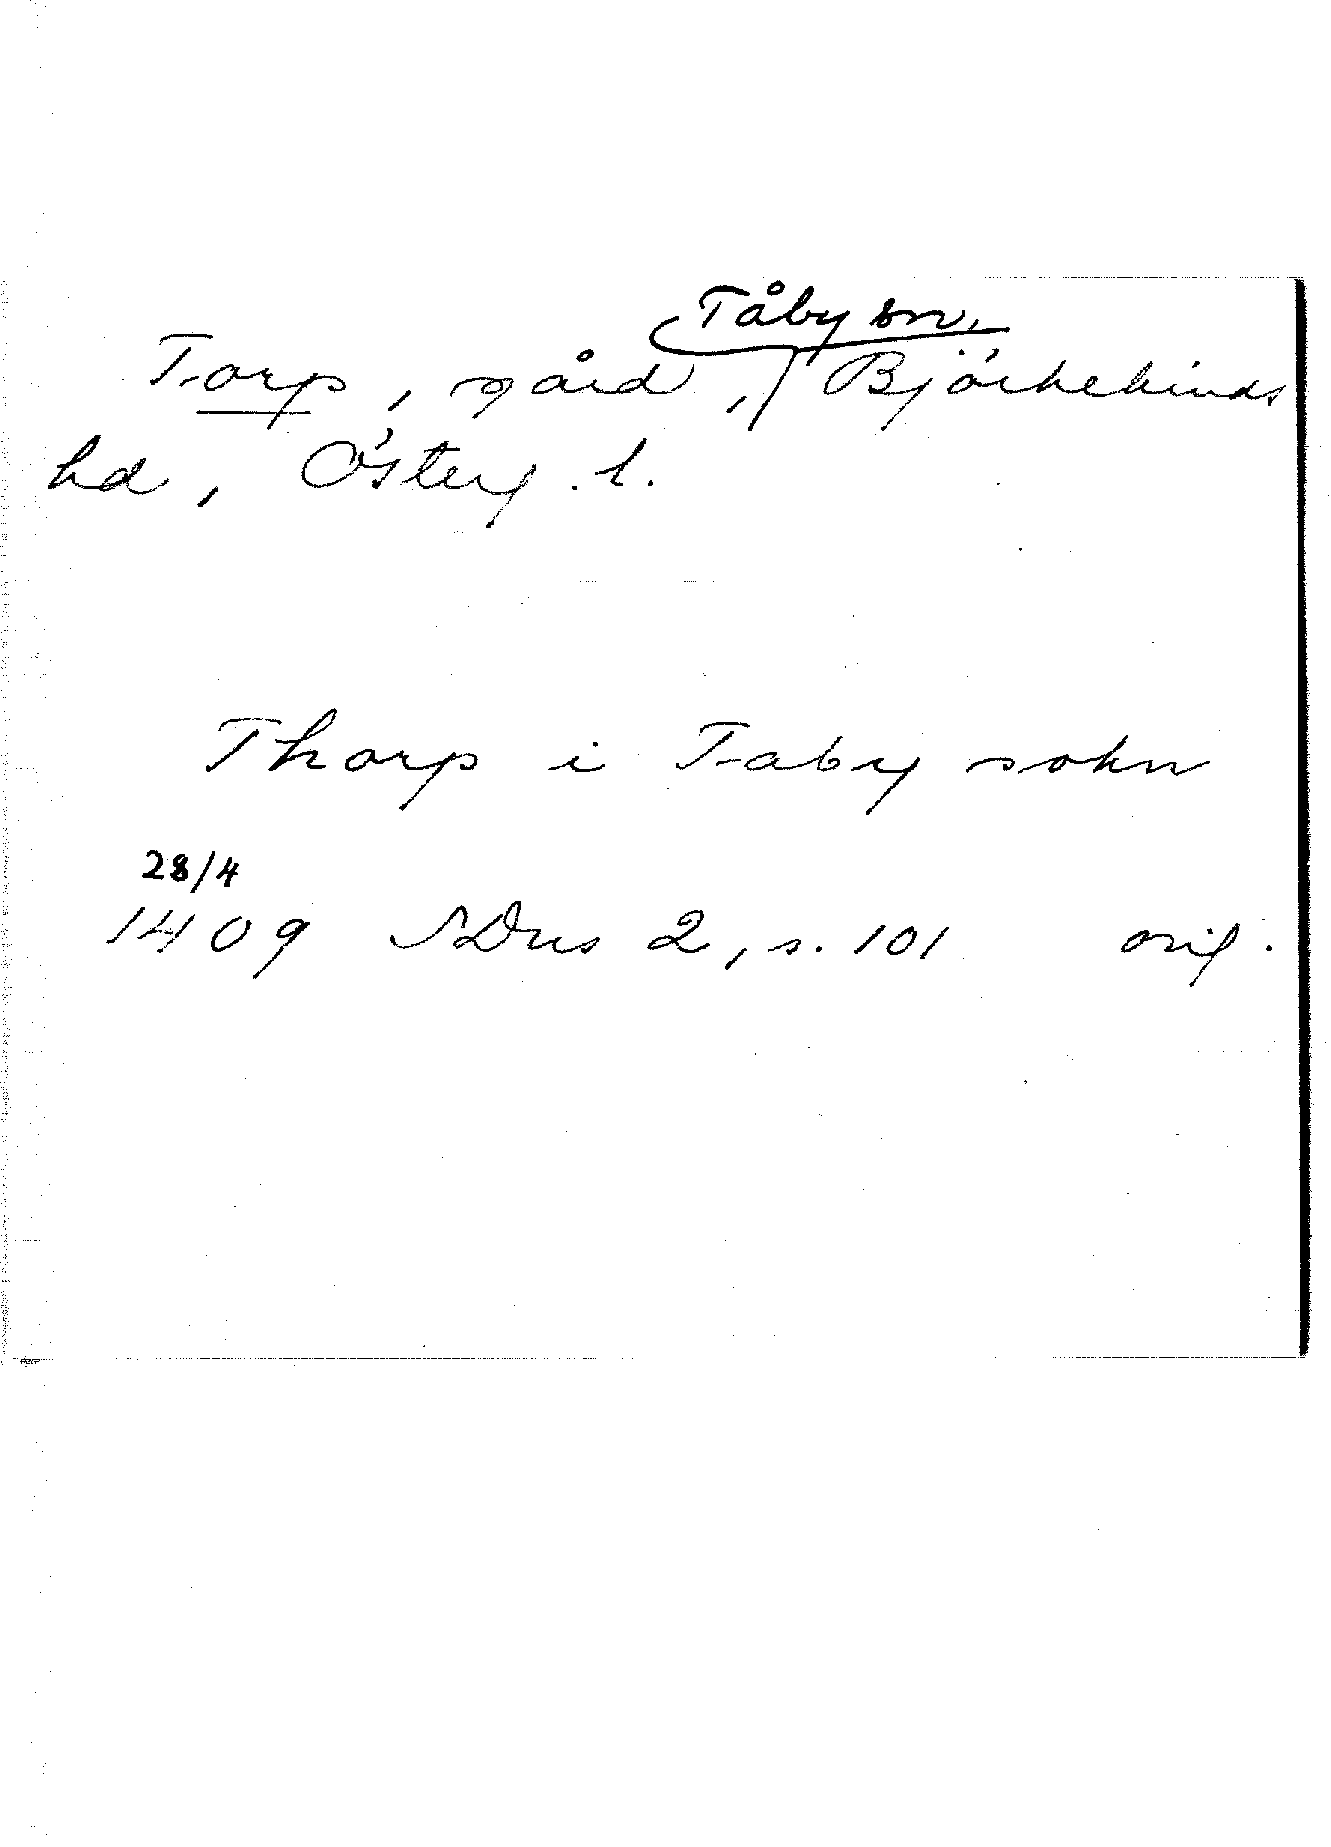 Tåby sn,
Torp, gård, Björkekinds
hd, Österg. l.
Thorp i Taby sokn
28/4
1409 SDns 2, s. 101 orig.